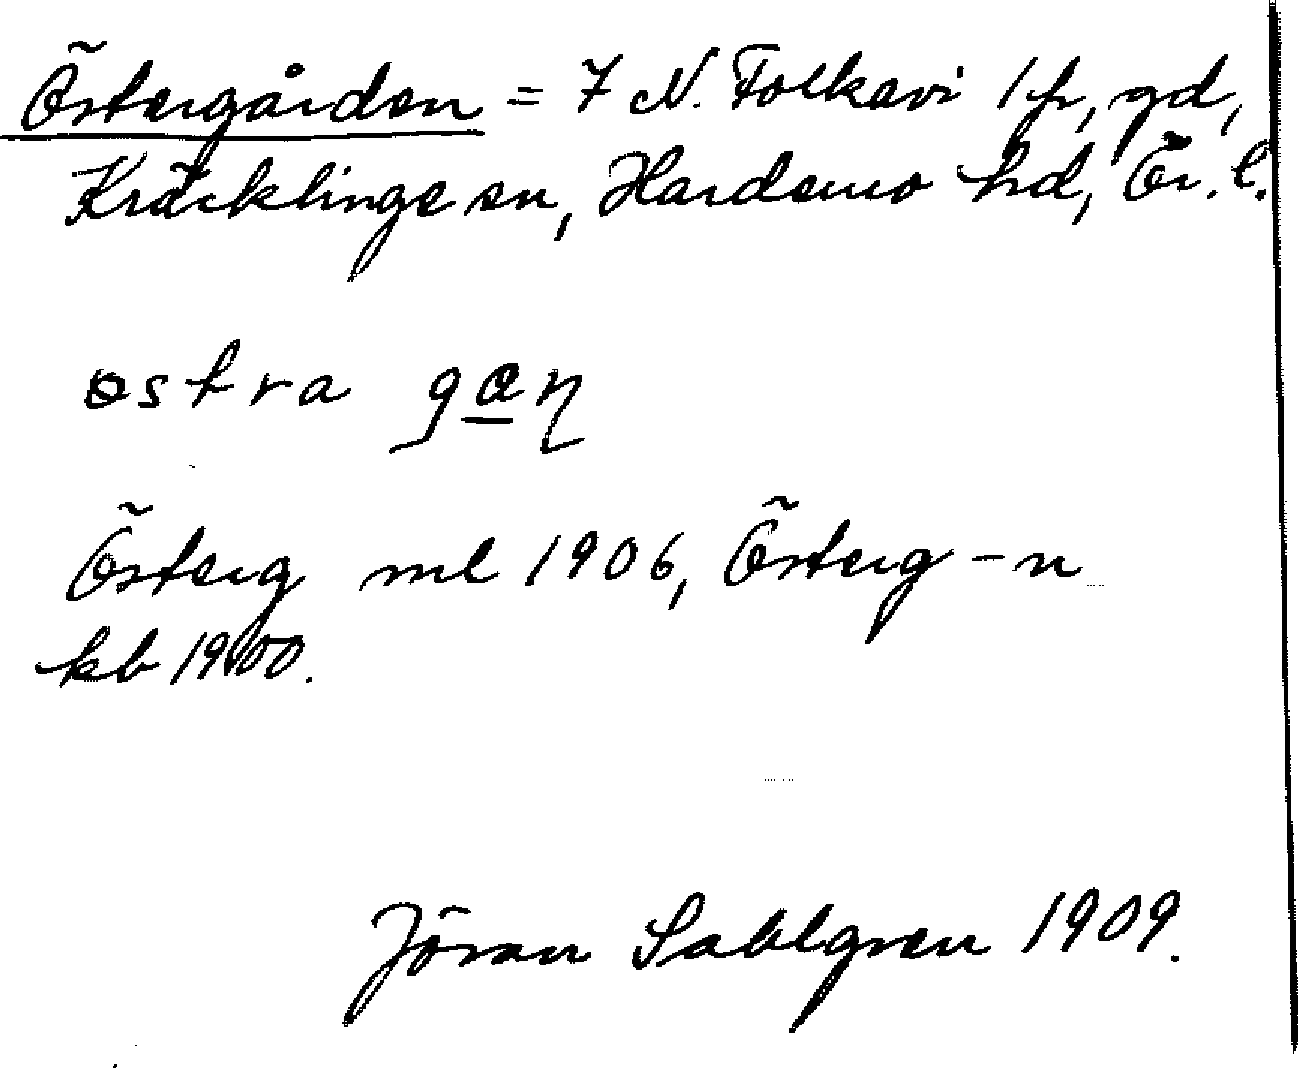 Östergården = 7 N. Folkavi 1/2, gd,
Kräcklinge sn, Hardemo hd, Ör. l.
østra
Österg ml 1906, Österg -n
kb 1900.
Jöran Sahlgren 1909.